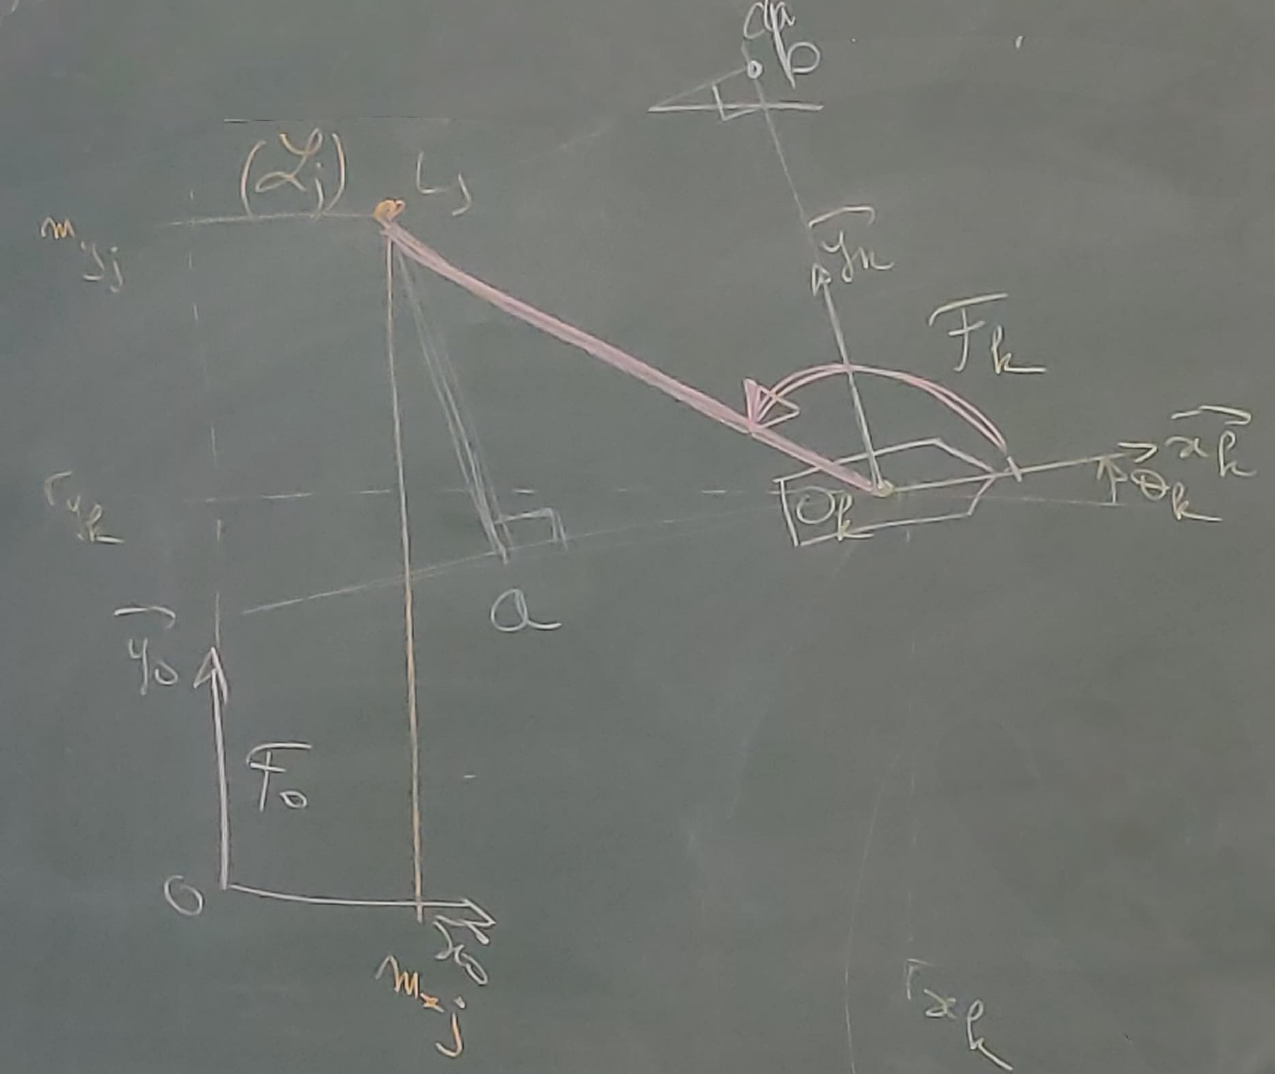 b
(ℒj) Lj
m_yj
→y_k
F_k
→x_k
θ_k
r_yk
O_k
a
→y_0
F_0
O
→x_0
m_xj
r_xk